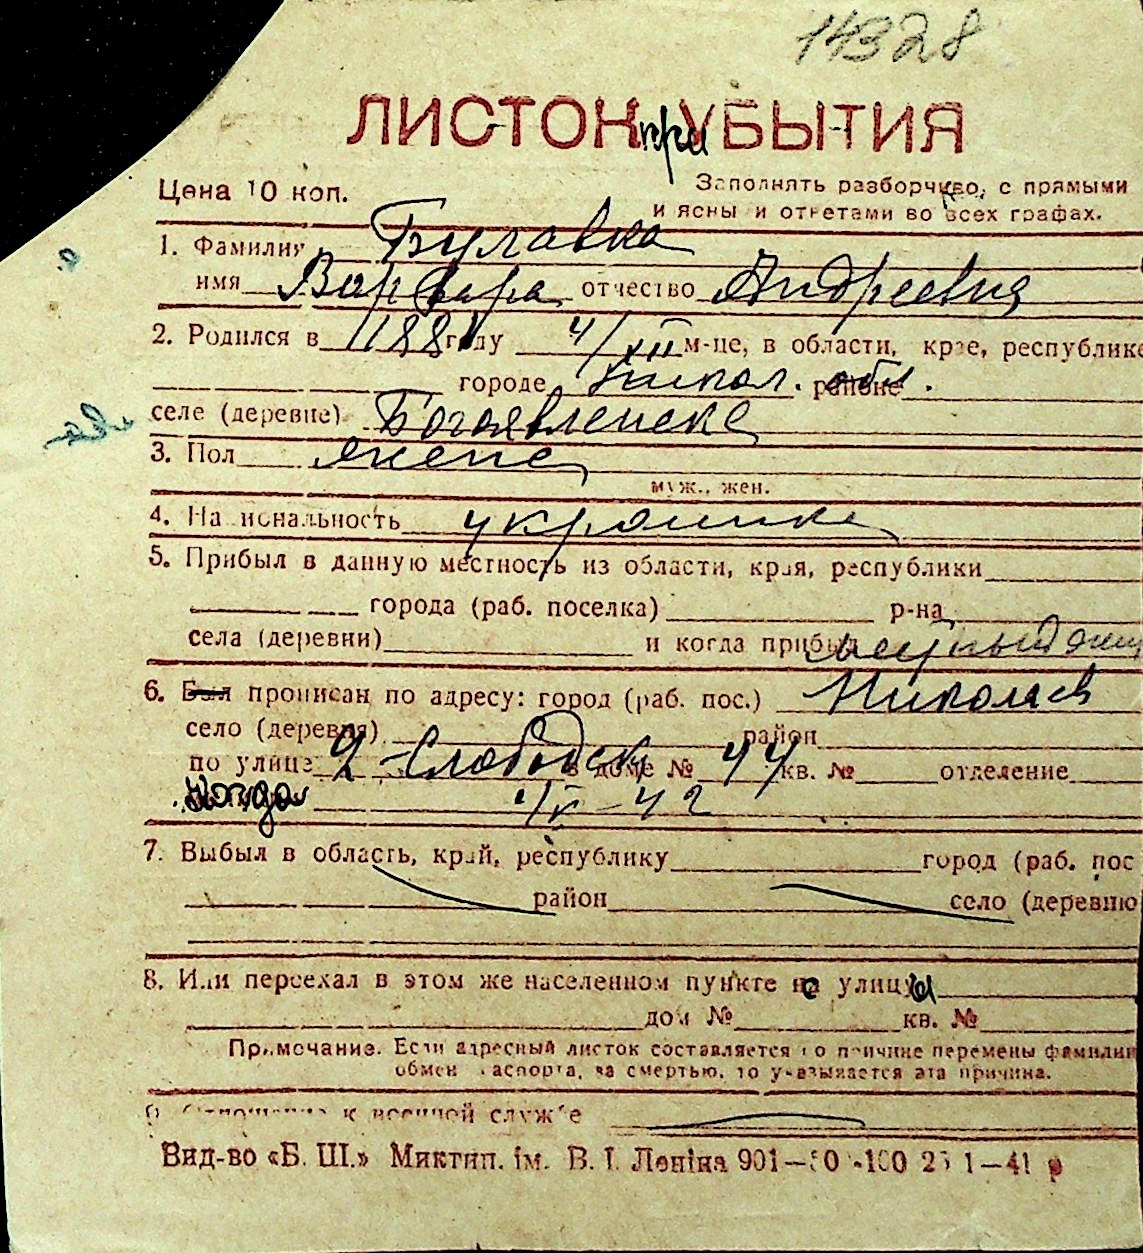 14328
ЛИСТОК при УБЫТИЯ
Цена 10 коп.
Заполнять разборчиво, с прямыми
и ясными ответами во всех графах.
1. Фамилия Булавка
имя Варвара отчество Андреевна
2. Родился в 1881 году 4/XII м-це, в области, крае, республике
городе Никол. обл. районе
селе (деревне) Богоявленске
3. Пол жене
муж., жен.
4. Национальность украинка
5. Прибыл в данную местность из области, края, республики
города (раб. поселка) р-на
села (деревни) и когда прибыл
6. Был прописан по адресу: город (раб. пос.) Николаев
село (деревня) район
по улице 2-Слободск в доме № 44 кв. № отделение
когда
7. Выбыл в область, край, республику город (раб. пос
район село (деревню
8. Или переехал в этом же населенном пункте с улицы
дом № кв. №
Примечание. Если адресный листок составляется по причине перемены фамилии
обмен паспорта, за смертью, то указывается эта причина.
9. Отношение к военной службе
Вид-во «Б. Ш.» Миктип. ім. В. І. Леніна 901—